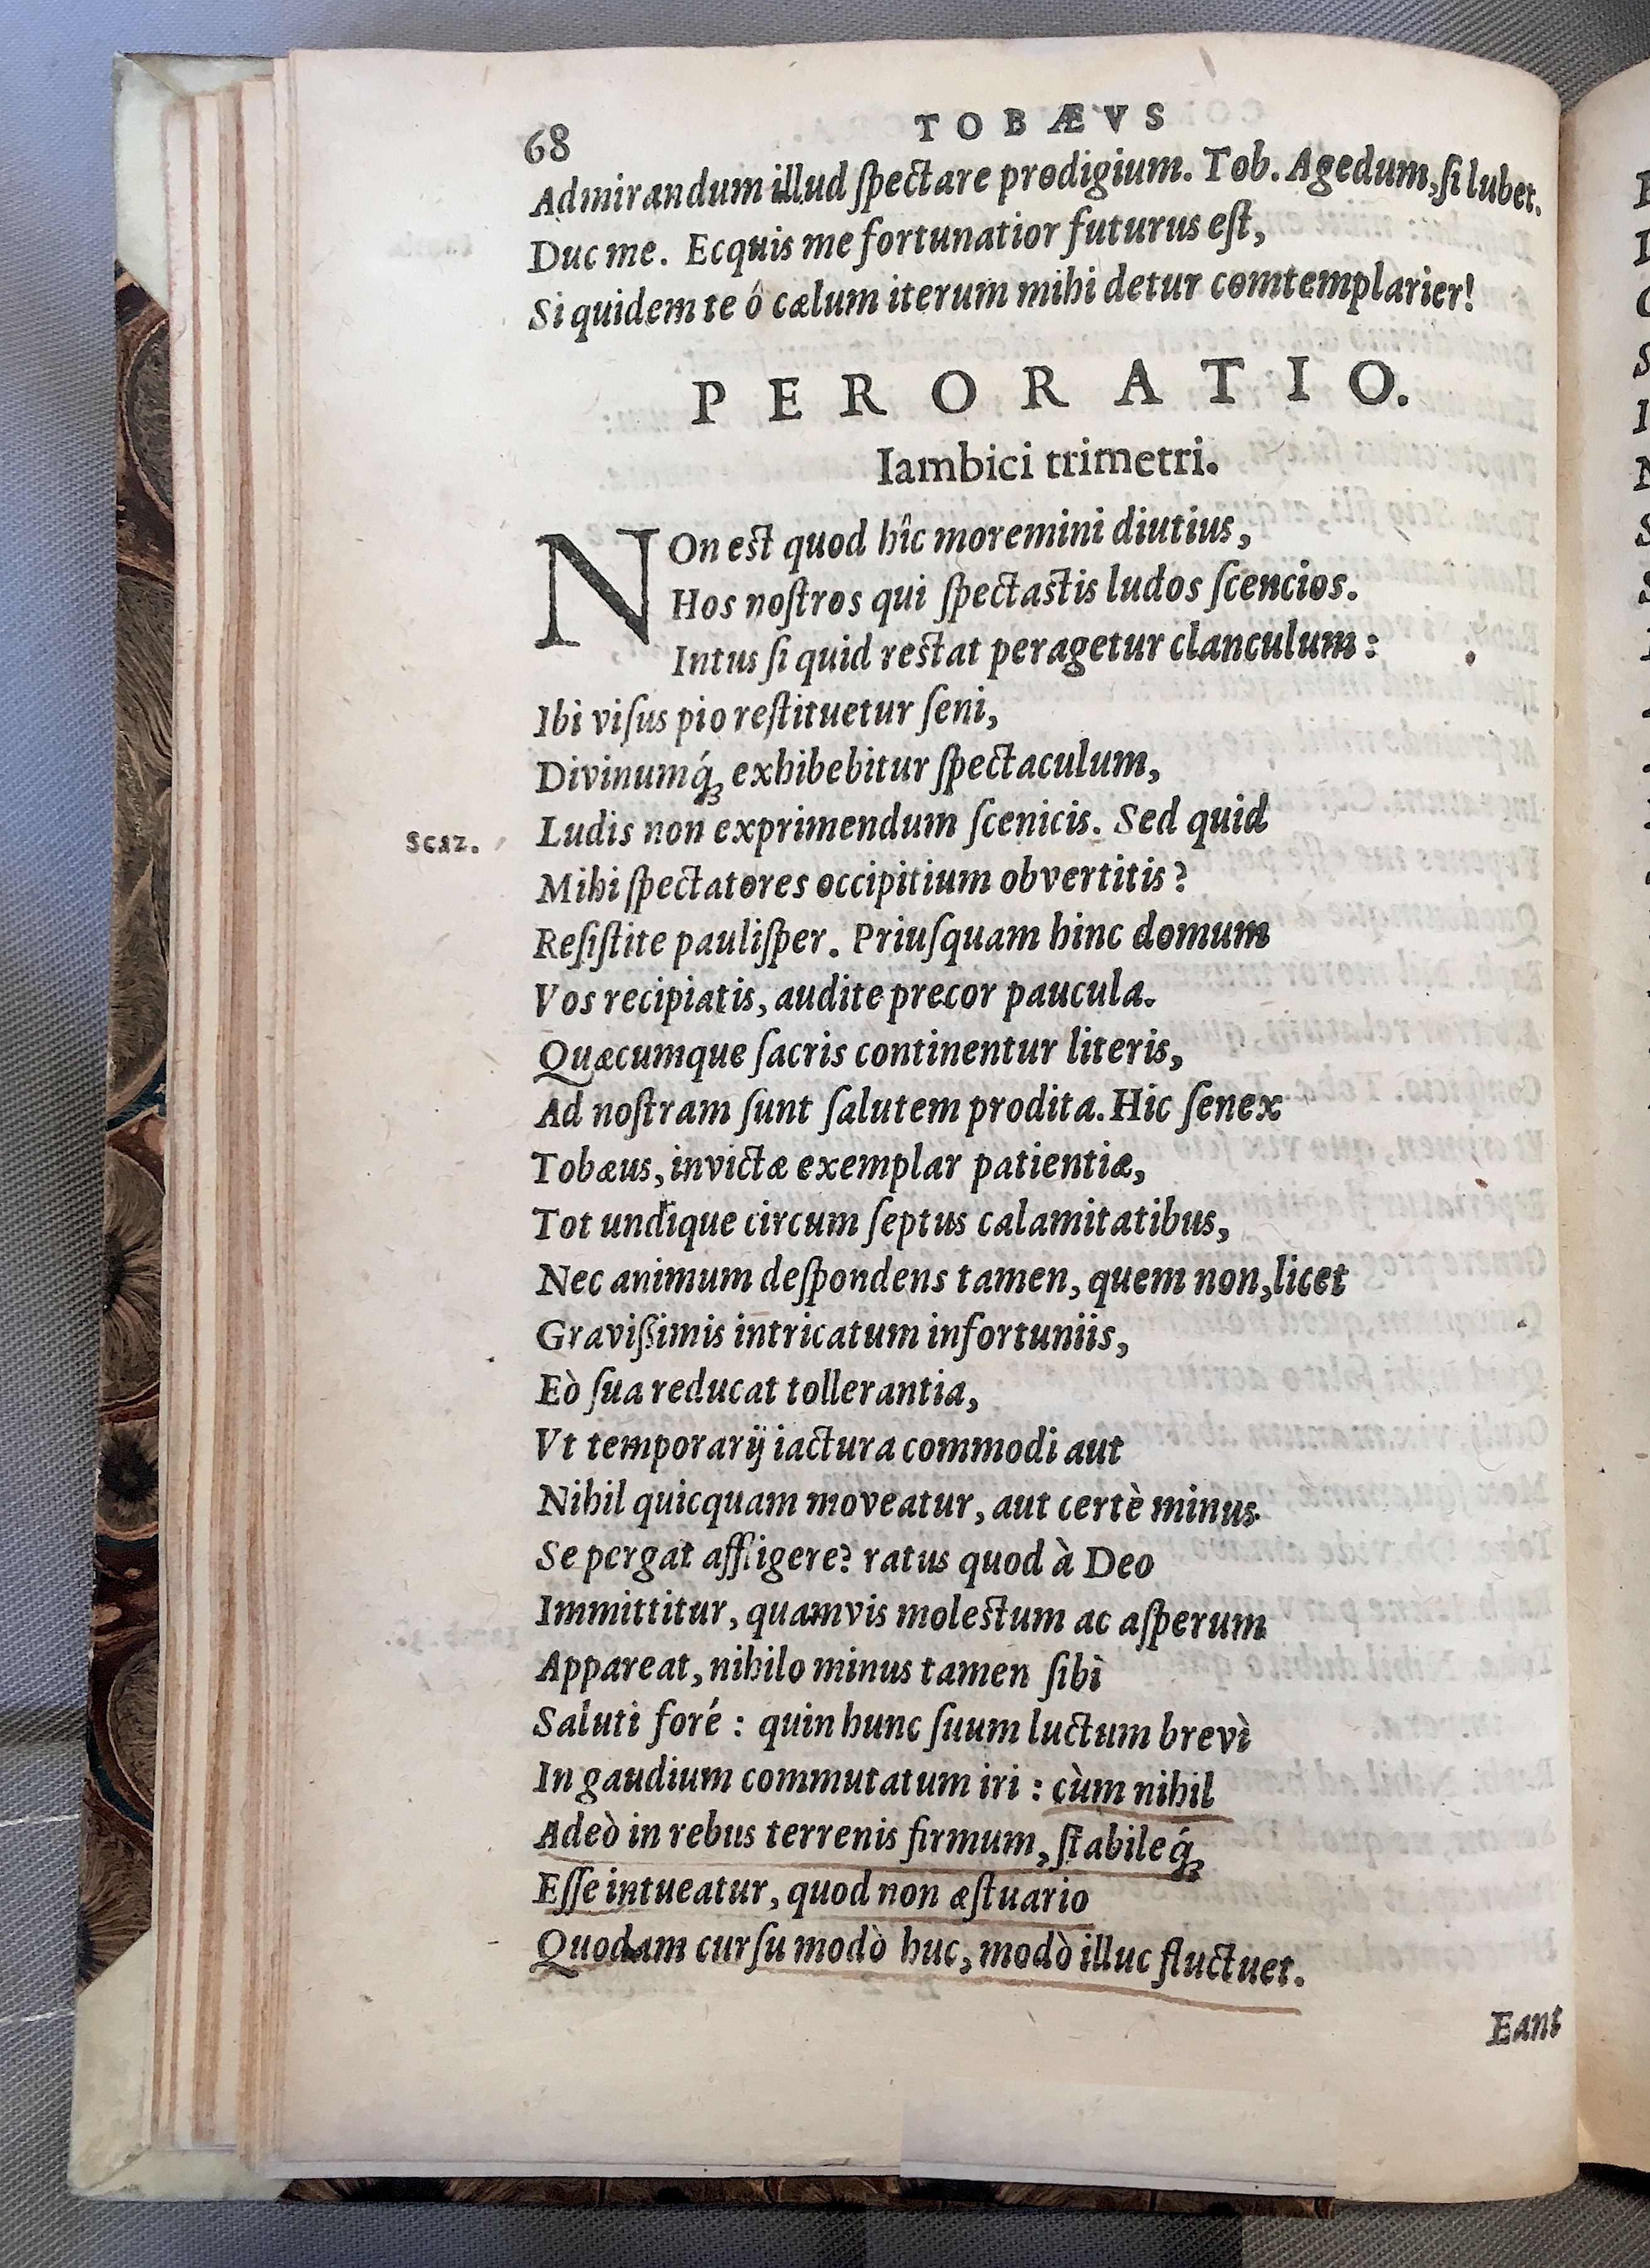 68
TOBÆVS
Admirandum illud ſpectare prodigium. Tob. Agedum, ſi lubet.
Duc me. Ecquis me fortunatior futurus eſt,
Si quidem te ô cælum iterum mihi detur comtemplarier!
PERORATIO.
Iambici trimetri.
NOn est quod hîc moremini diutius,
Hos noſtros qui ſpectastis ludos ſcencios.
Intus ſi quid restat peragetur clanculum:
Ibi viſus pio reſtituetur ſeni,
Divinumq́ꝫ exhibebitur ſpectaculum,
Scaz. Ludis non exprimendum ſcenicis. Sed quid
Mihi ſpectatores occipitium obvertitis?
Reſiſtite pauliſper. Priuſquam hinc domum
Vos recipiatis, audite precor paucula.
Quæcumque ſacris continentur literis,
Ad noſtram ſunt ſalutem prodita. Hic ſenex
Tobæus, invictæ exemplar patientiæ,
Tot undique circum ſeptus calamitatibus,
Nec animum deſpondens tamen, quem non, licet
Graviſsimis intricatum infortuniis,
Eò ſua reducat tollerantia,
Vt temporarij iactura commodi aut
Nihil quicquam moveatur, aut certè minus
Se pergat affligere? ratus quod à Deo
Immittitur, quamvis molestum ac aſperum
Appareat, nihilo minus tamen ſibi
Saluti foré: quin hunc ſuum luctum brevì
In gaudium commutatum iri: cùm nihil
Adeò in rebus terrenis firmum, ſtabileq́ꝫ
Eſſe intueatur, quod non æſtuario
Quodam curſu modò huc, modò illuc fluctuet.
Eant